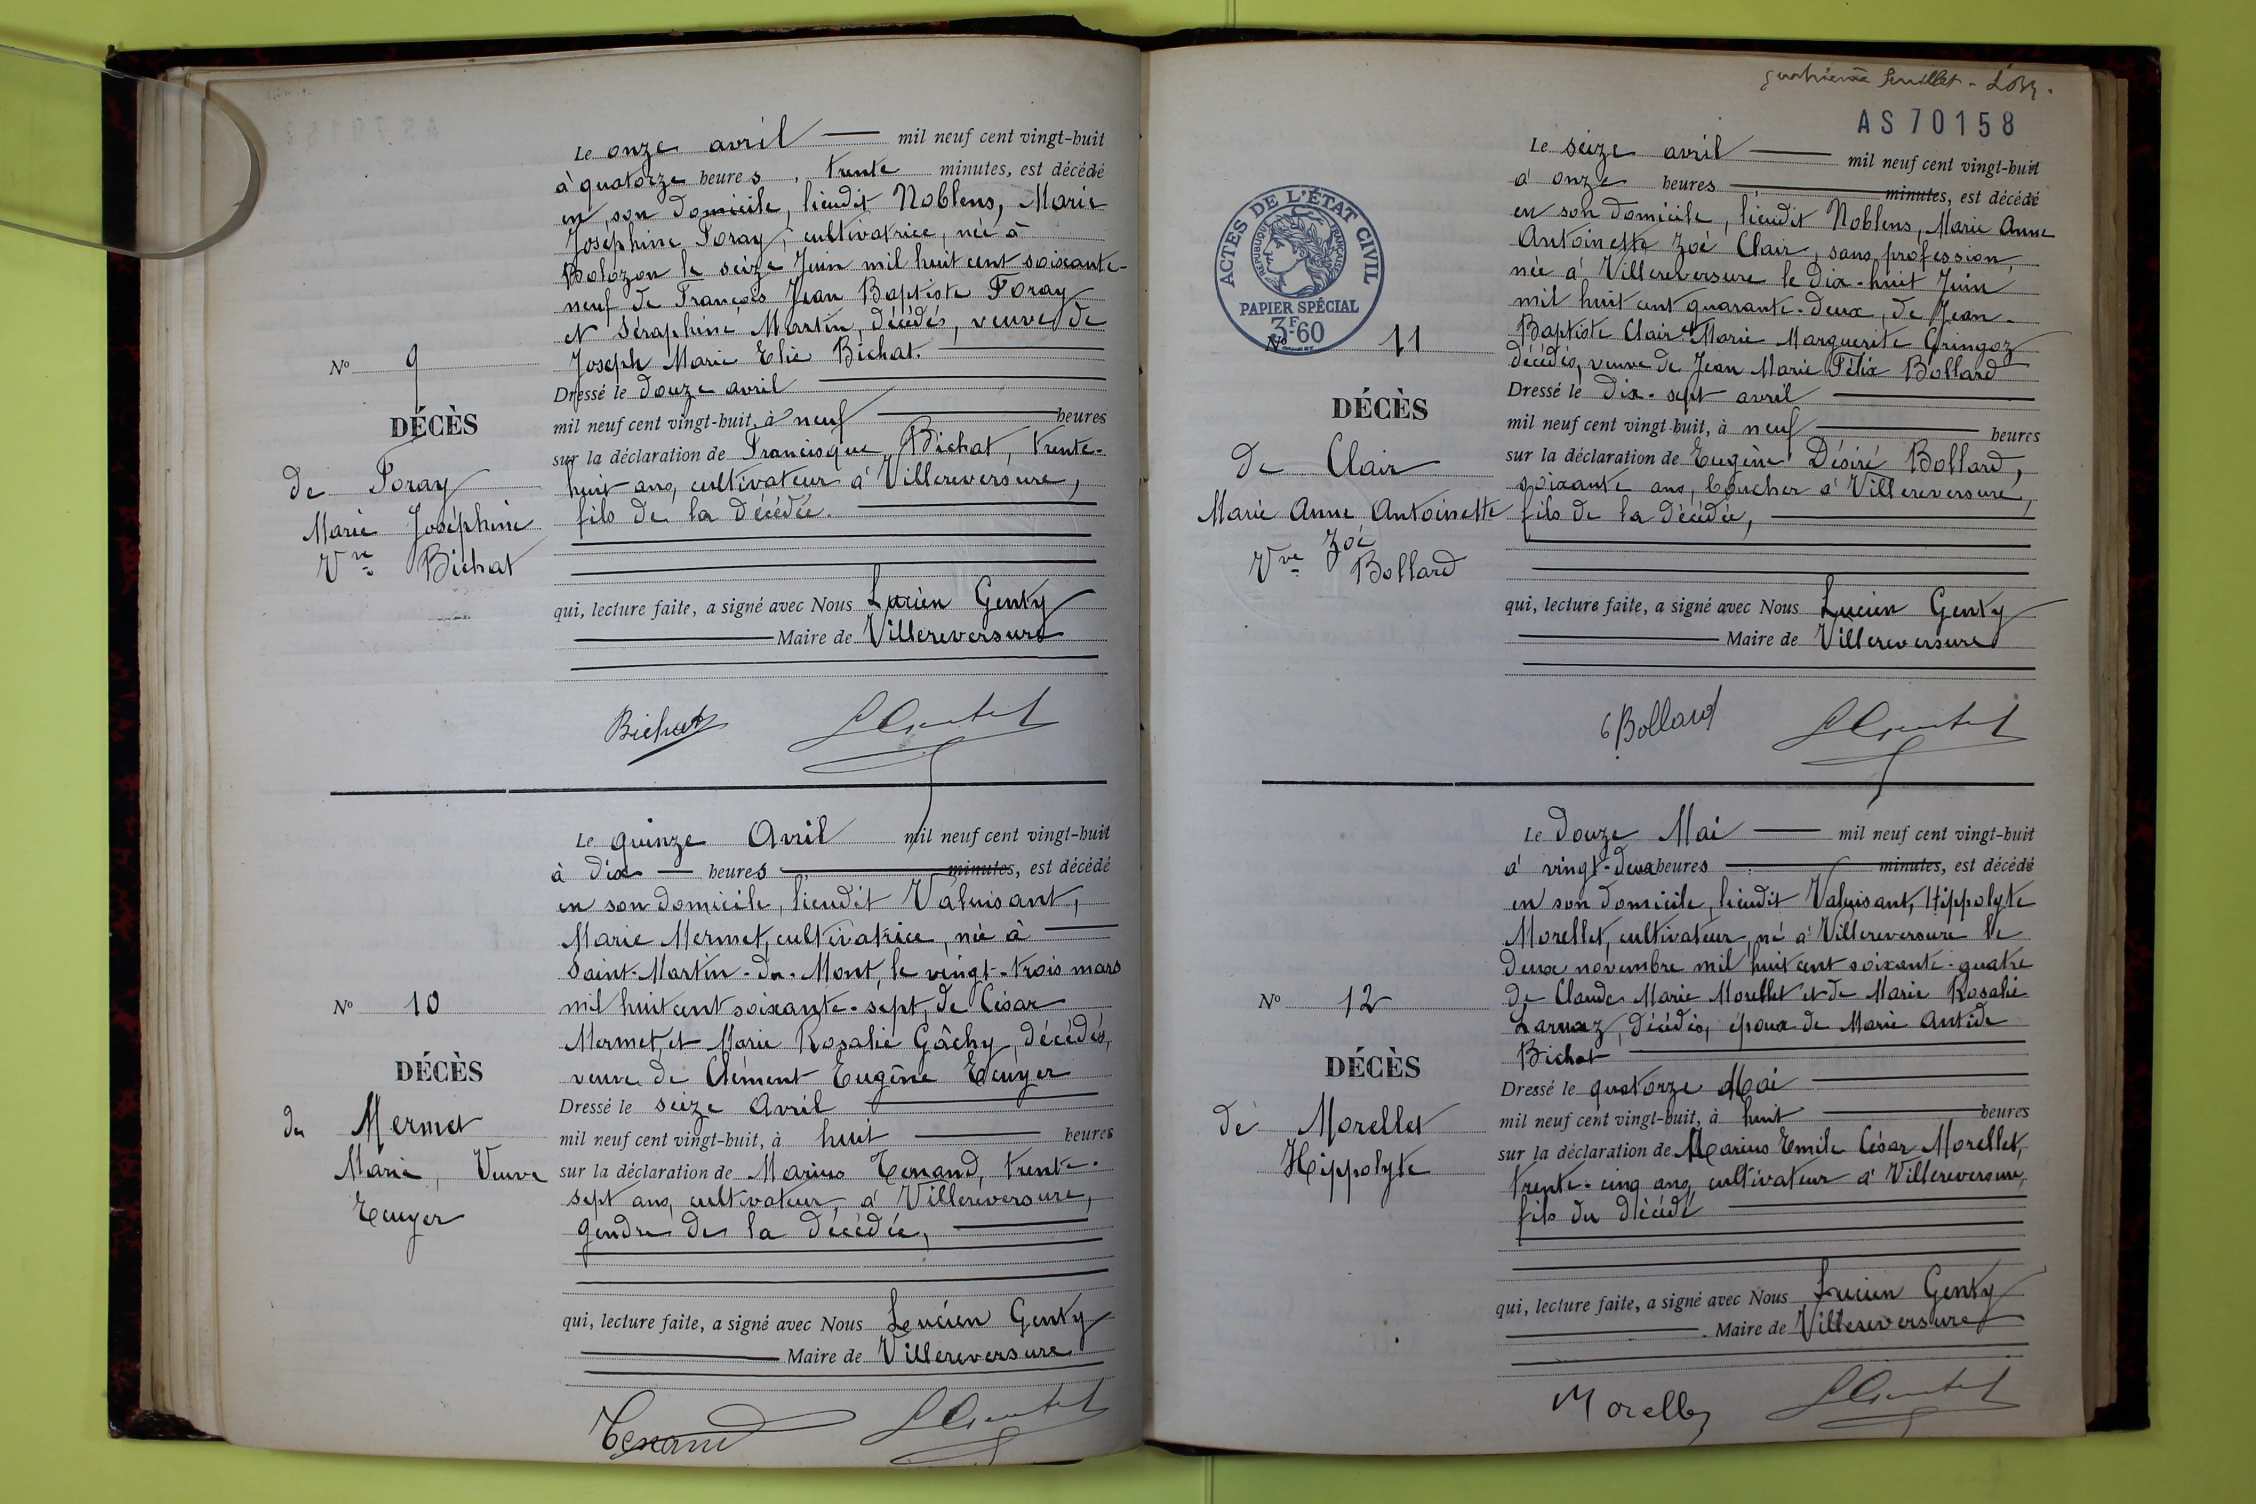 Le onze avril mil neuf cent vingt-huit
à quatorze heures, trente minutes, est décédé
en son domicile, lieudit Noblens, Marie
Joséphine Foray, cultivatrice, née à
Bolozon le seize Juin mil huit cent soixante-
neuf de François Jean Baptiste Foray
et Séraphine Martin, décédés, veuve de
Joseph Marie Elie Bichat.
Dressé le douze avril
mil neuf cent vingt-huit, à neuf heures
sur la déclaration de Francisque Bichat, trente-
huit ans, cultivateur à Villereversure,
fils de la décédée.
qui, lecture faite, a signé avec Nous Lucien Genty
Maire de Villereversure
No 9
DÉCÈS
de Foray
Marie Joséphine
Vve Bichat
Bichat
Le quinze Avril mil neuf cent vingt-huit
à dix heures minutes, est décédé
en son domicile, lieudit Valuisant,
Marie Mermet, cultivatrice, née à
Saint-Martin-du-Mont, le vingt-trois mars
mil huit cent soixante-sept, de César
Mermet et Marie Rosalie Gâchy, décédés,
veuve de Clément Eugène Tenyer
Dressé le seize Avril
mil neuf cent vingt-huit, à huit heures
sur la déclaration de Marius Tenand, trente-
sept ans, cultivateur, à Villereversure,
gendre de la décédée,
qui, lecture faite, a signé avec Nous Lucien Genty
Maire de Villereversure
No 10
DÉCÈS
de Mermet
Marie, Veuve
Tenyer
Tenand
quatrième feuillet
AS 70158
ACTES DE L'ÉTAT CIVIL
RÉPUBLIQUE FRANÇAISE
PAPIER SPÉCIAL
3F60
Le seize avril mil neuf cent vingt-huit
à onze heures minutes, est décédé
en son domicile, lieudit Noblens, Marie Anne
Antoinette Zoé Clair, sans profession,
née à Villereversure le dix-huit Juin
mil huit cent quarante-deux, de Jean-
Baptiste Clair et Marie Marguerite Gringoz
décédés, veuve de Jean Marie Félix Bollard
Dressé le dix-sept avril
mil neuf cent vingt-huit, à neuf heures
sur la déclaration de Eugène Désiré Bollard,
soixante ans, boucher à Villereversure,
fils de la décédée,
qui, lecture faite, a signé avec Nous Lucien Genty
Maire de Villereversure
No 11
DÉCÈS
de Clair
Marie Anne Antoinette
Zoé
Vve Bollard
Bollard
Le douze Mai mil neuf cent vingt-huit
à vingt-deux heures minutes, est décédé
en son domicile, lieudit Valuisant, Hippolyte
Morellet, cultivateur, né à Villereversure le
deux novembre mil huit cent soixante-quatre
de Claude Marie Morellet et de Marie Rosalie
Larnaz, décédés, époux de Marie Antide
Bichat
Dressé le quatorze Mai
mil neuf cent vingt-huit, à huit heures
sur la déclaration de Marius Emile César Morellet,
trente-cinq ans, cultivateur à Villereversure,
fils du décédé
qui, lecture faite, a signé avec Nous Lucien Genty
Maire de Villereversure
No 12
DÉCÈS
de Morellet
Hippolyte
Morellet